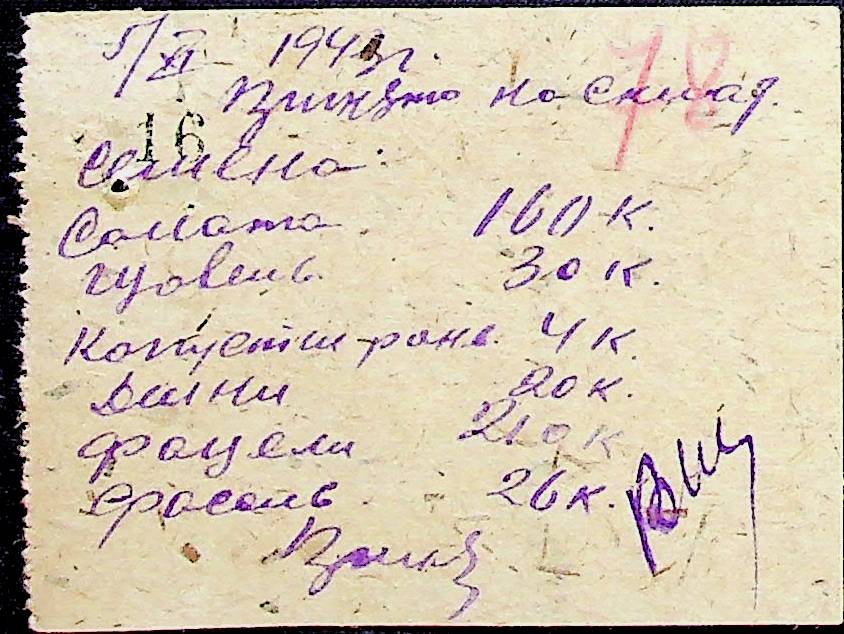 5/XI 1943 г. 78
Принято на склад.
16
семена:
Салата 160 к.
щовель 30 к.
Капусти ране 4 к.
Дини 20 к.
фацели 210 к
фасоль 26 к.
Принял